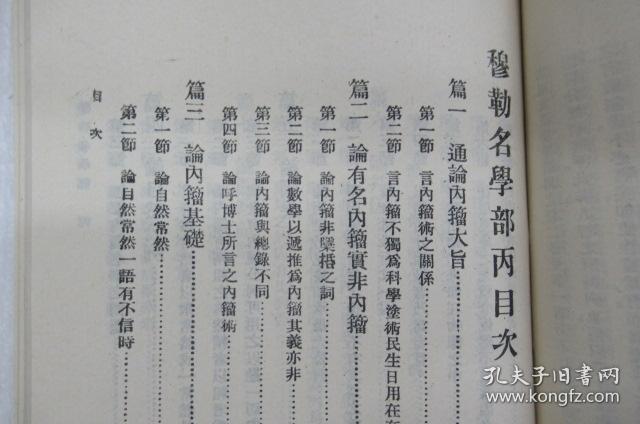 穆勒名學部丙目次
篇一 通論內籀大旨
第一節 言內籀術之關係
第二節 言內籀不獨爲科學塗術民生日用在在
篇二 論有名內籀實非內籀
第一節 論內籀非檃括之詞
第二節 論數學以遞推爲內籀其義亦非
第三節 論內籀與總錄不同
第四節 論呼博士所言之內籀術
篇三 論內籀基礎
第一節 論自然常然
第二節 論自然常然一語有不信時
目次
孔夫子旧书网
www.kongfz.com